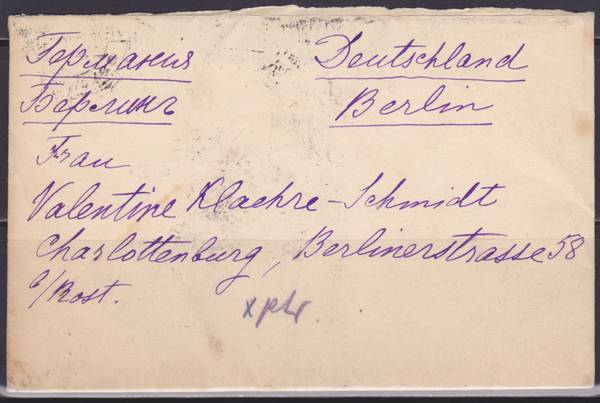 Германия Deutschland
Берлинъ Berlin
Frau
Valentine Klaehre-Schmidt
Charlottenburg, Berlinerstrasse 58
b/Rost.